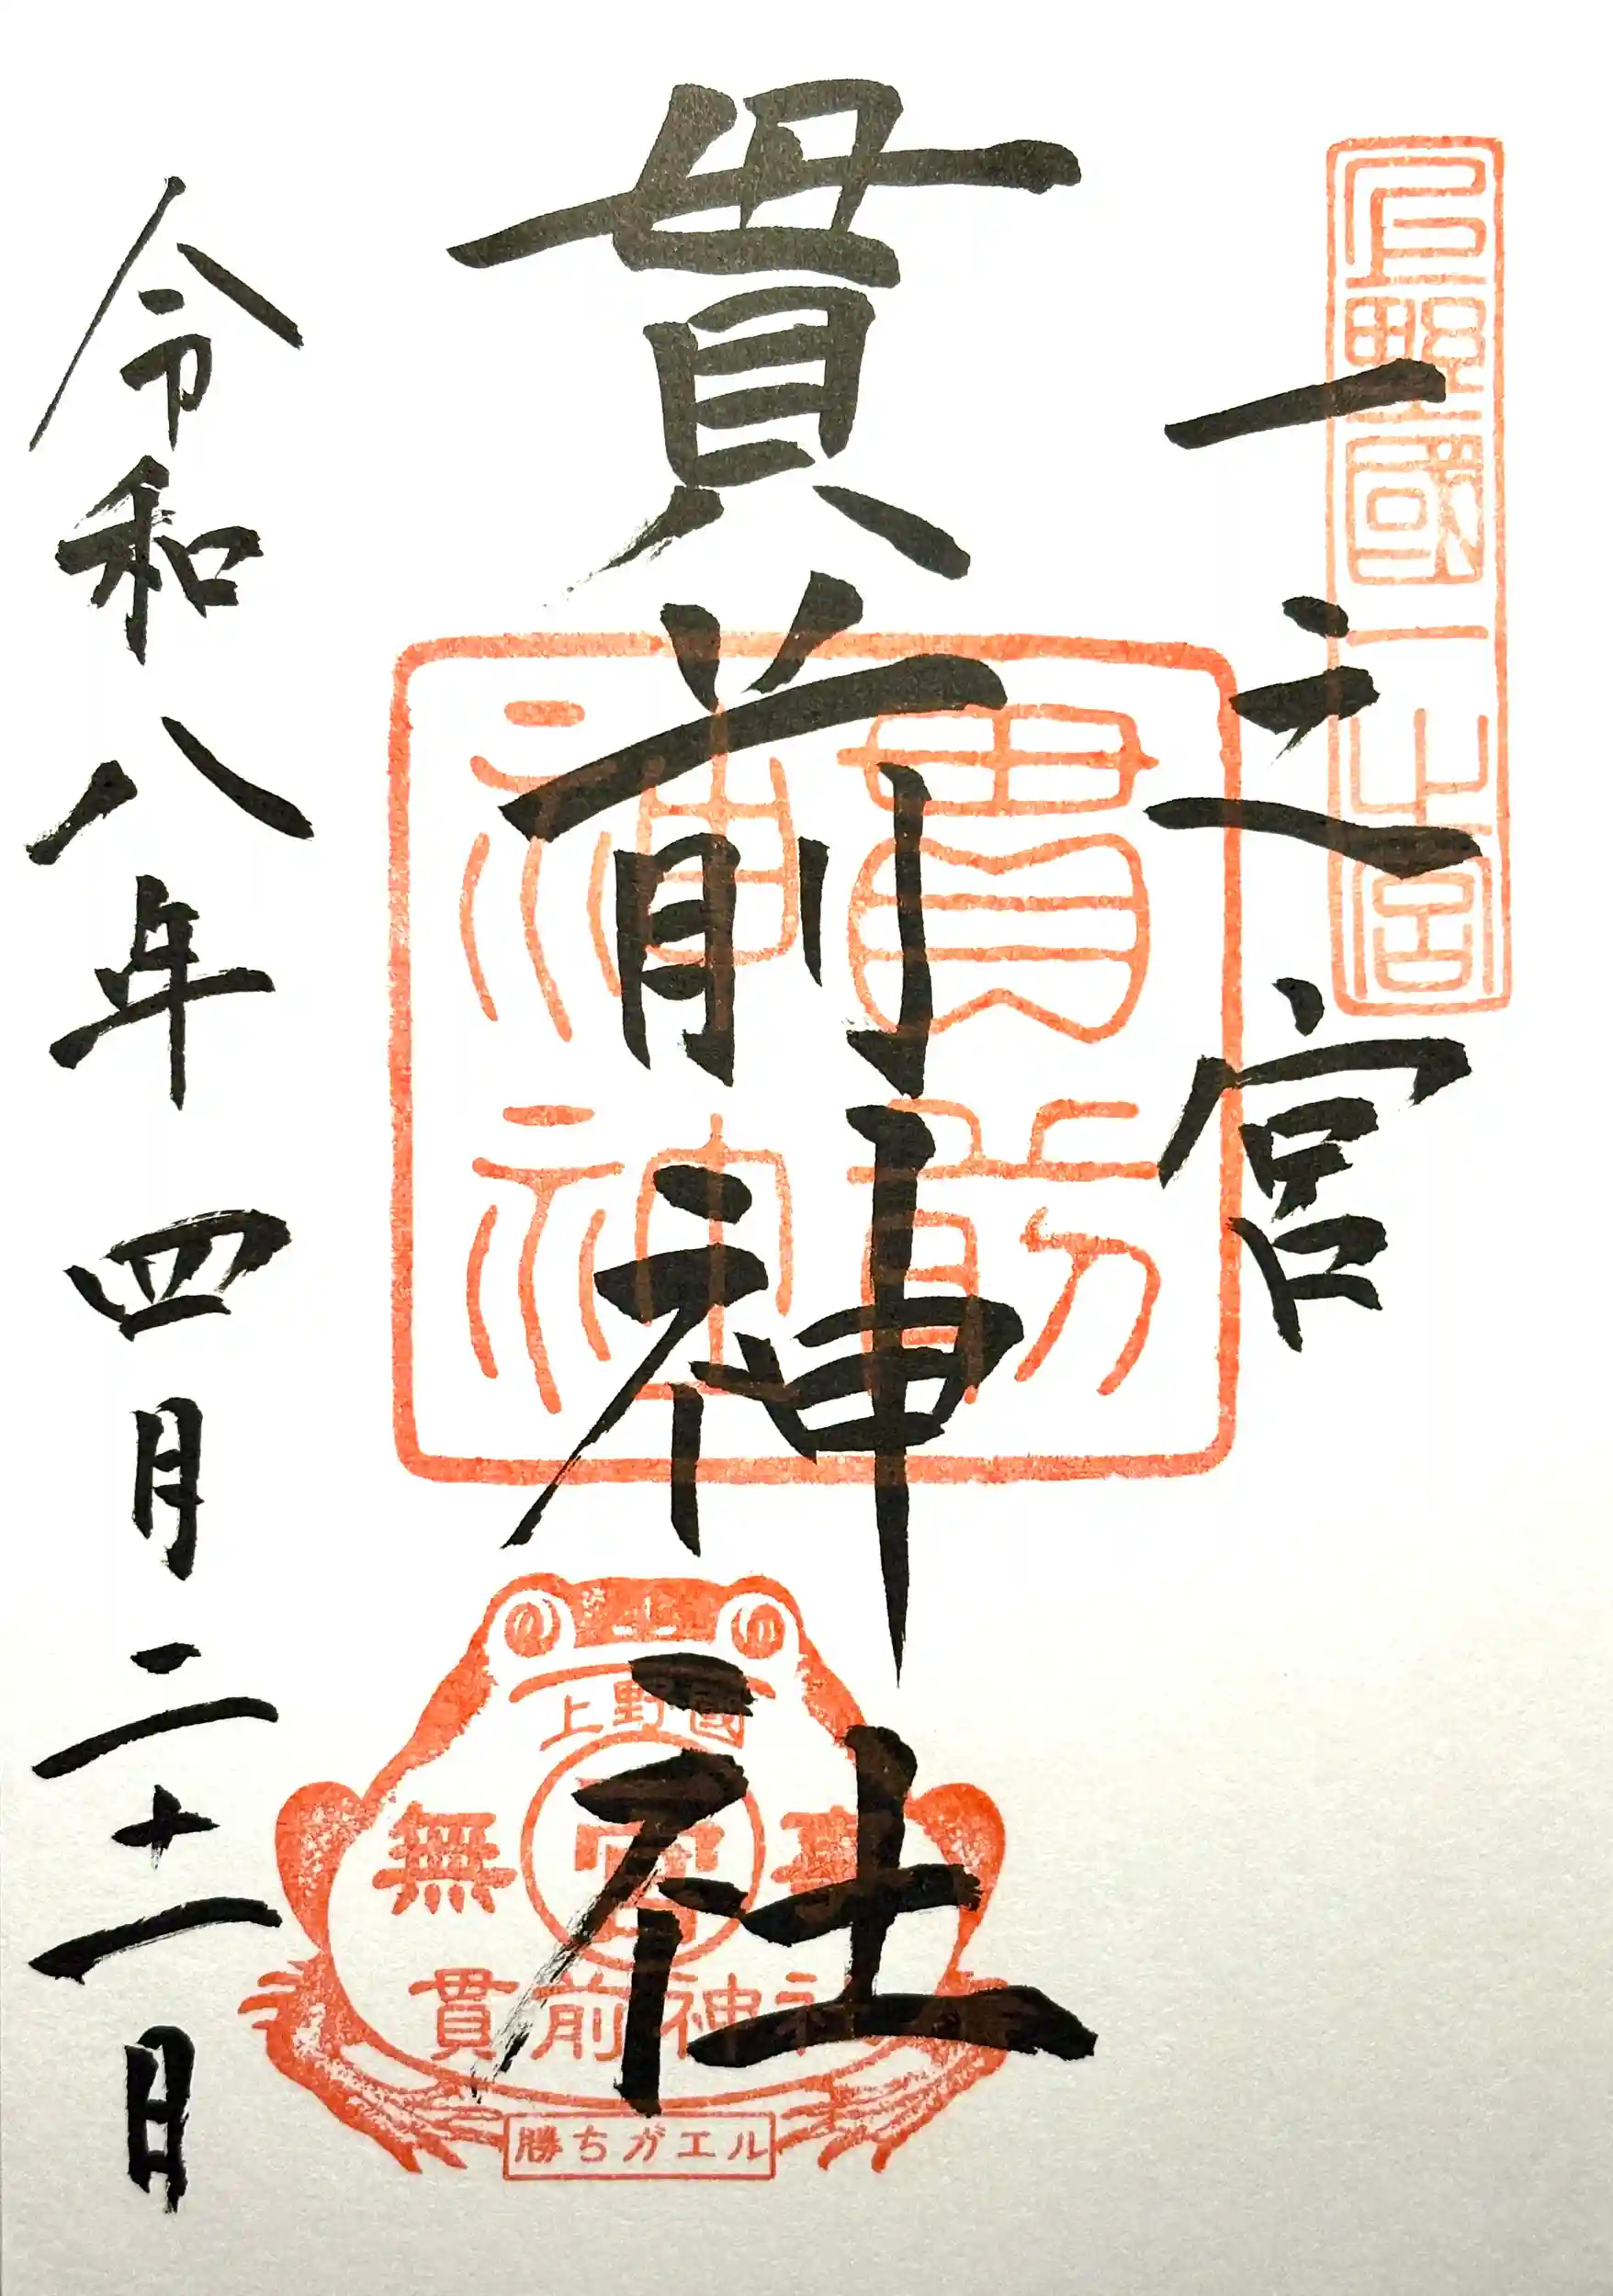 上野國一之宮
一之宮
貫前神社
貫前
上野國
無事
貫前神社
勝ちガエル
令和八年四月二十一日